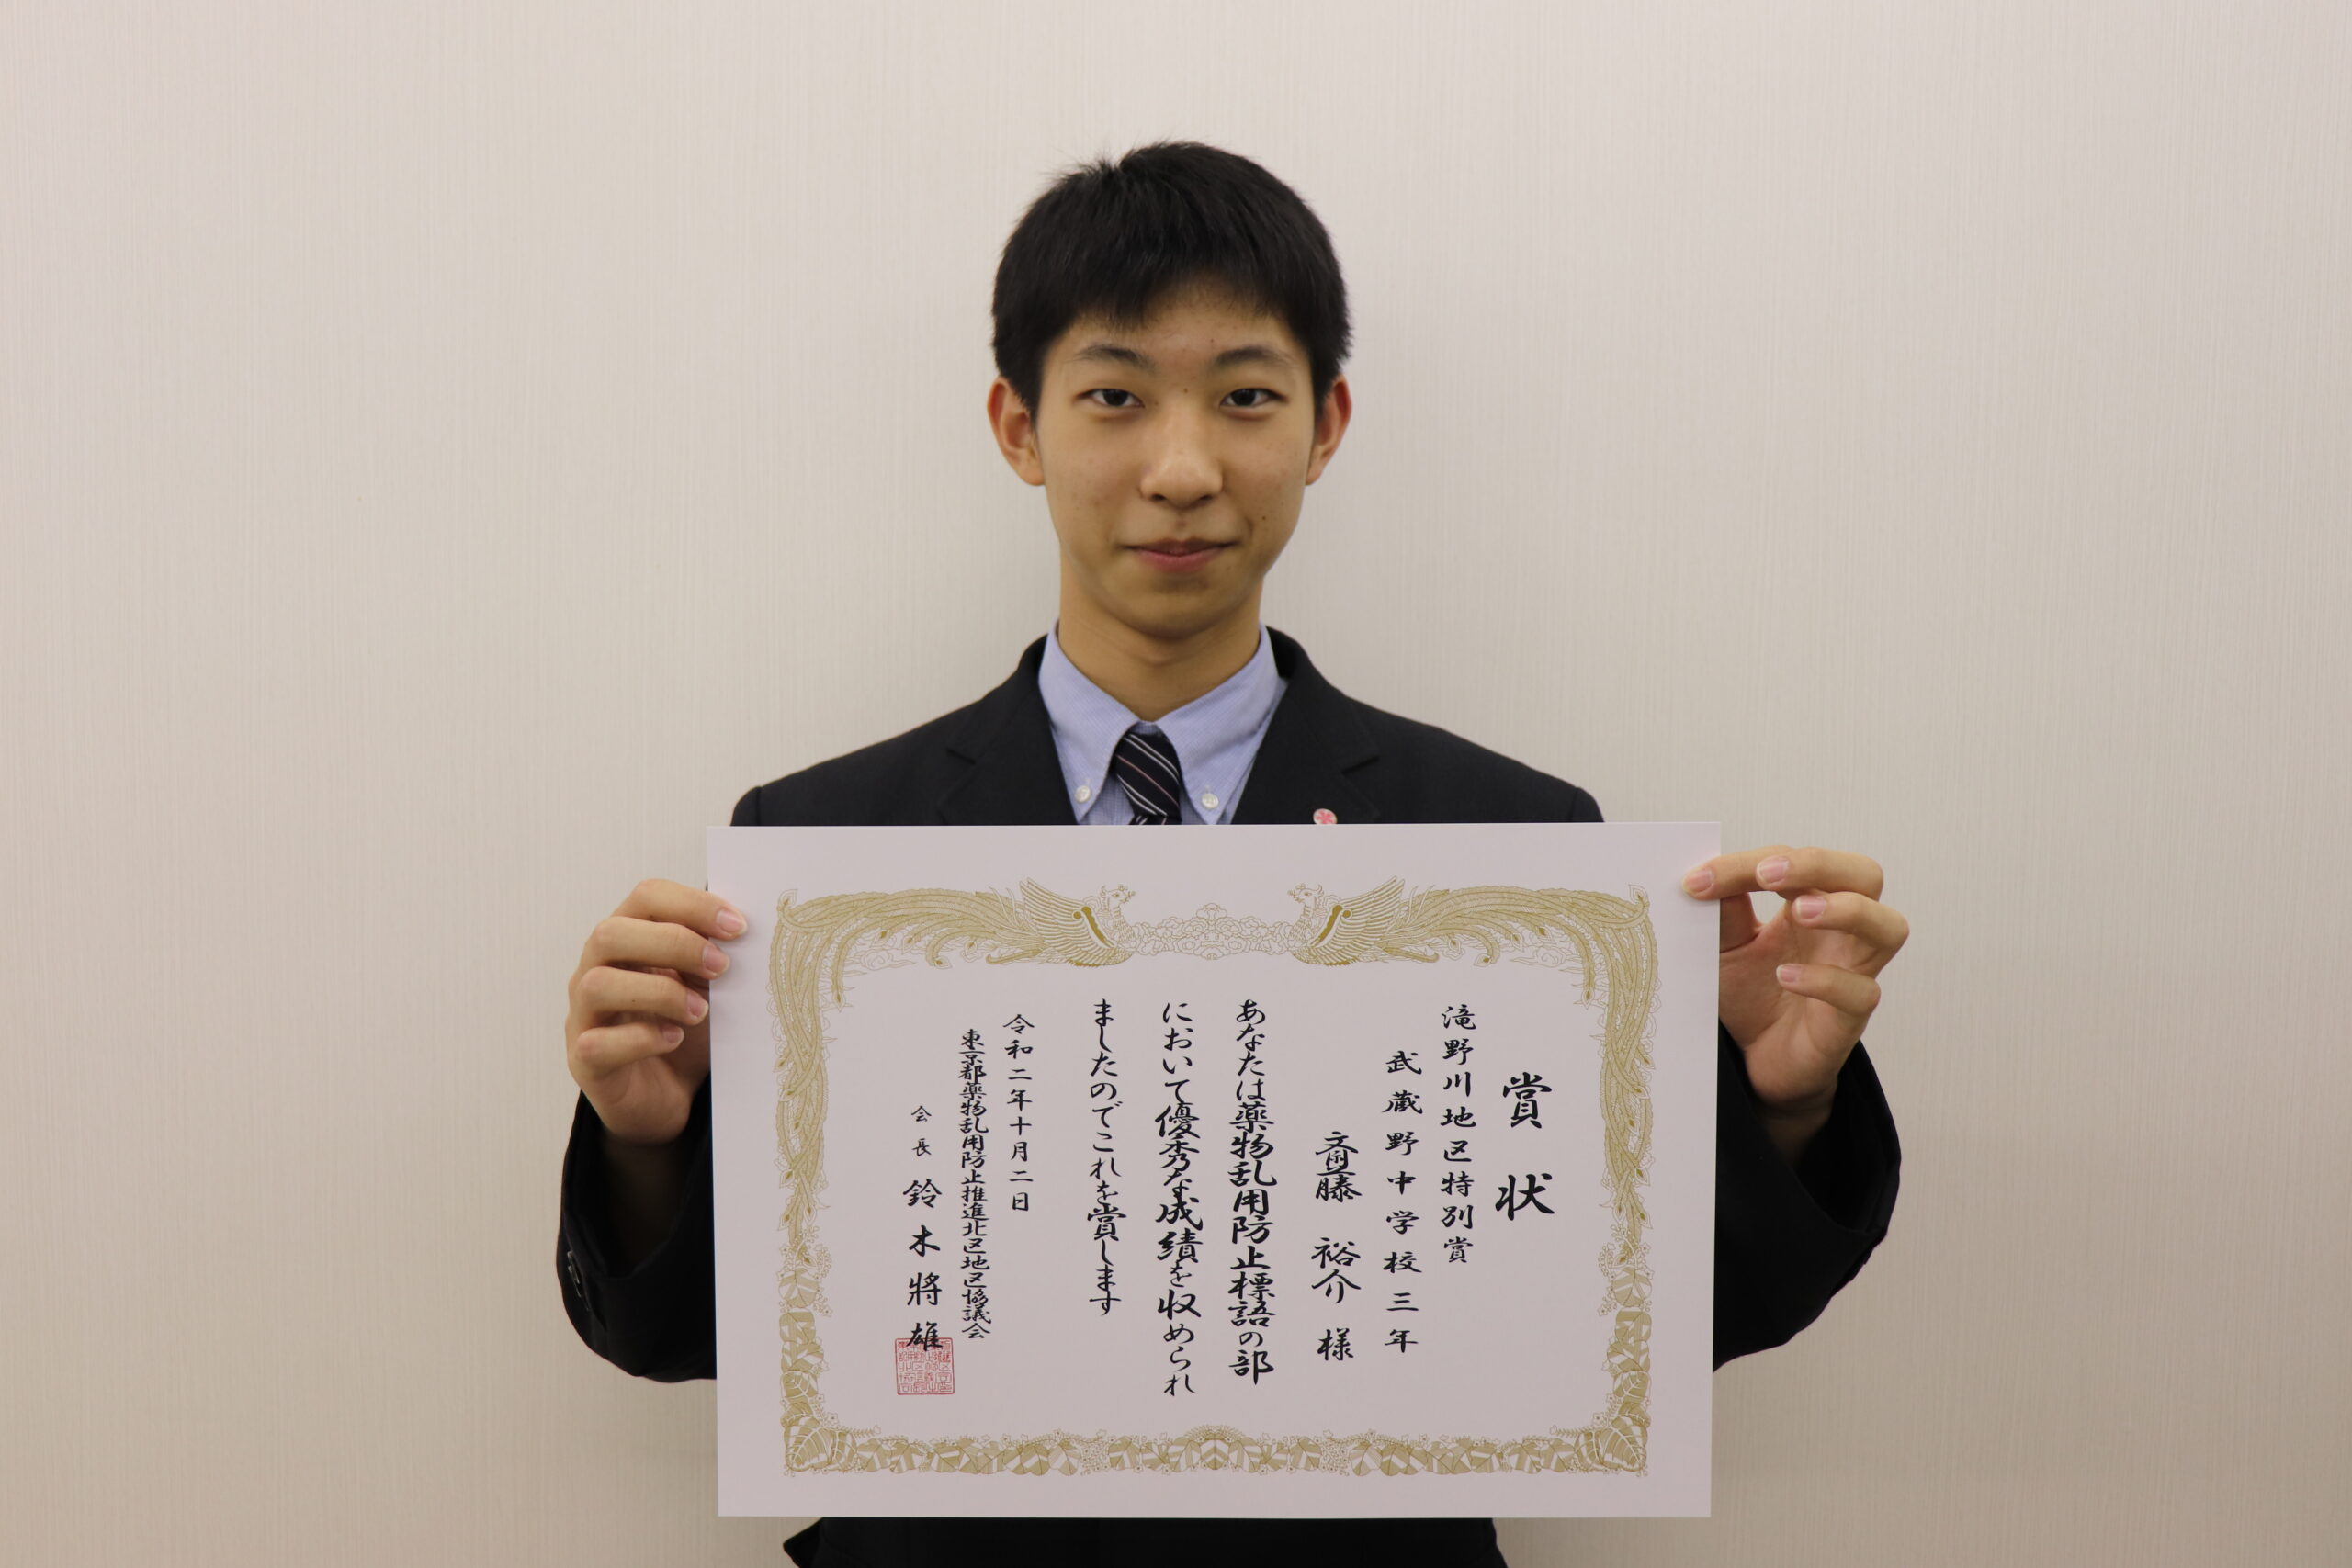 賞状
滝野川地区特別賞
武蔵野中学校三年
齋藤 裕介 様
あなたは薬物乱用防止標語の部
において優秀な成績を収められ
ましたのでこれを賞します
令和二年十月二日
東京都薬物乱用防止推進北区地区協議会
会長 鈴木將雄